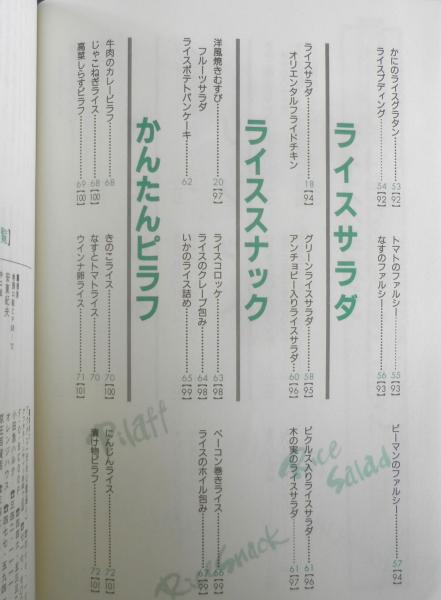 かにのライスグラタン……53【92】
ライスプディング……54【92】
トマトのファルシー……55【93】
なすのファルシー……56【93】
ピーマンのファルシー……57【94】
ライスサラダ
ライスサラダ……18【94】
オリエンタルフライドチキン
グリーンライスサラダ……58【95】
アンチョビー入りライスサラダ……60【96】
ピクルス入りライスサラダ……61【96】
木の実のライスサラダ……61【97】
Rice Salad
ライススナック
洋風焼きむすび……20【97】
フルーツサラダ
ライスポテトパンケーキ……62
ライスコロッケ……63【98】
ライスのクレープ包み……64【98】
いかのライス詰め……65【99】
ベーコン巻きライス……66【99】
ライスのホイル包み……67【99】
Rice Snack
かんたんピラフ
牛肉のカレーピラフ……68
じゃこねぎライス……68【100】
高菜しらすピラフ……69【100】
きのこライス……70【100】
なすとトマトライス……70
ウインナ卵ライス……71【101】
にんじんライス……72【101】
漬け物ピラフ……72【101】
Pilaff
安東紀夫
オレンジハウス